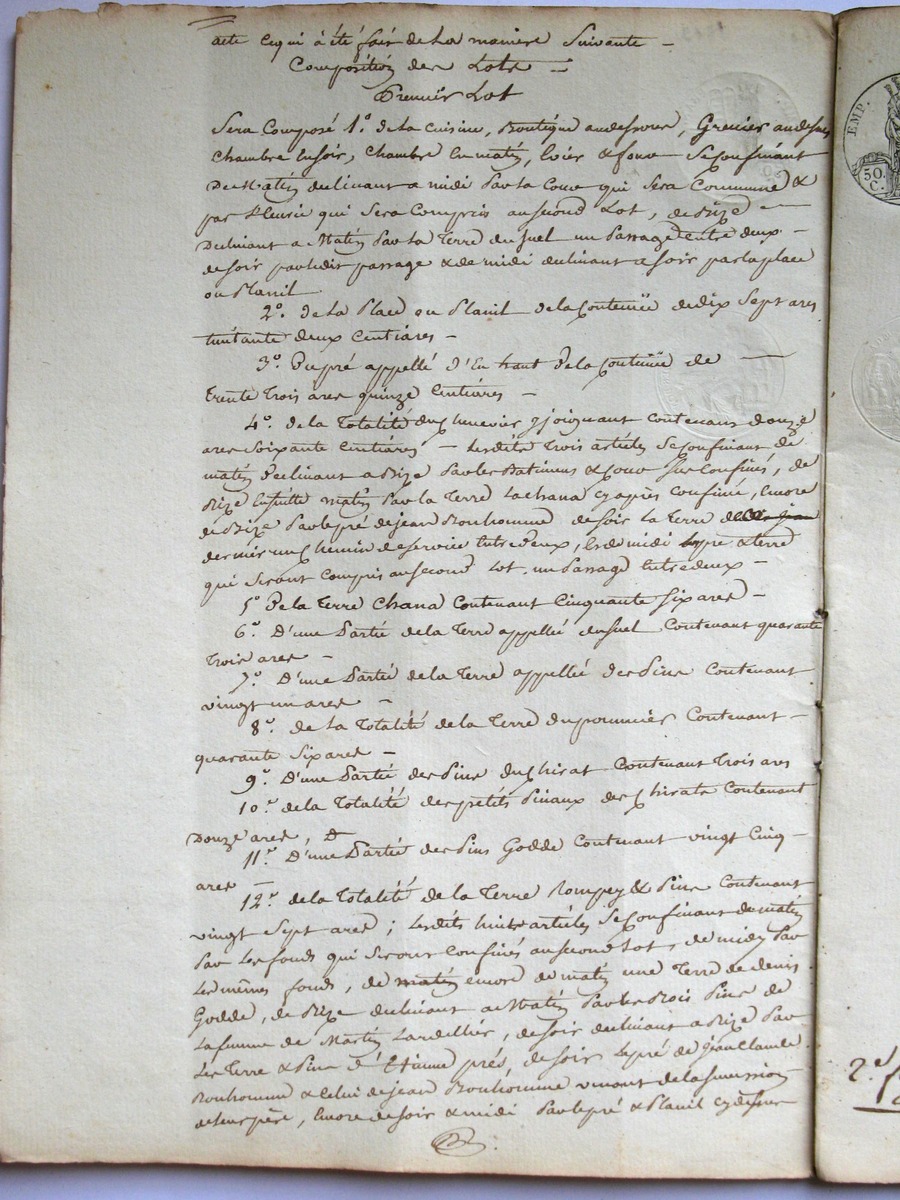 acte ce qui à été fait de La maniere Suivante –
Composition des Lots –
Premier Lot
Sera Composé 1.º de La Cuisine, Boutique au dessous, Grenier au dessus
chambre en soir, chambre en matin, & four Se Confinant
De Matin declinant a midi Par La Cour qui Sera Commune &
par l'Ecurie qui Sera Compris au second Lot, de Bize
Declinant a Matin Par La Terre du suel un Passage entre deux –
de soir par ledit passage & de midi declinant a soir par la place
ou Planil
2.º de La Place ou Planil de la Contenue de dix Sept ares
trente deux Centiares –
3.º Du pré appellé d'En haut De la Contenue de
Trente Trois ares quinze Centiares –
4.º de la Totalité du Chenevier y joignant Contenant douze
ares Soixante Centiares – Lesdits Trois articles Se Confinant de
matin Declinant a Bize Par les Batimens & Cour sus Confinés, de
Bize Ensuitte matin Par La Terre Lachana cy après Confinée, Encore
de Bize Par le pré de jean Bonhomme de soir La Terre de
dernier un Chemin de service Entre deux, & de midi le pré & terre
qui Seront Compris au second Lot, un Passage Entre deux –
5.º De la Terre Chana Contenant Cinquante Six ares –
6.º D'une Partie de la Terre appellée du suel Contenant quarante
Trois ares –
7.º D'une Partie de la Terre appellée des Pins Contenant
vingt un ares –
8.º de La Totalité de la Terre du pommier Contenant –
quarante Six ares –
9.º D'une Partie des Pins du Chirat Contenant Trois ares
10.º de la Totalité des petits Pinaux des Chirats Contenant
Douze ares, &
11.º D'une Partie des Pins Godde Contenant vingt Cinq –
ares –
12.º de la Totalité de la Terre Rompey & Pins Contenant
vingt Sept ares; Lesdits huit articles Se Confinant de matin
Par Les fonds qui Seront Confinés au second Lot, de midy Par
Les mêmes fonds, de matin encore de matin une Terre de denis
Godde, de Bize declinant a Matin Par les Bois Pins de
La femme de Martin Lardellier, de soir declinant a Bize Par
Les Terre & Pins d'Etienne prés, de soir Le pré de jean Claude
Bonhomme & Celui de jean Bonhomme venant de la Succession
de leur père, Encore de soir & midi Par le pré & Planil cy dessus